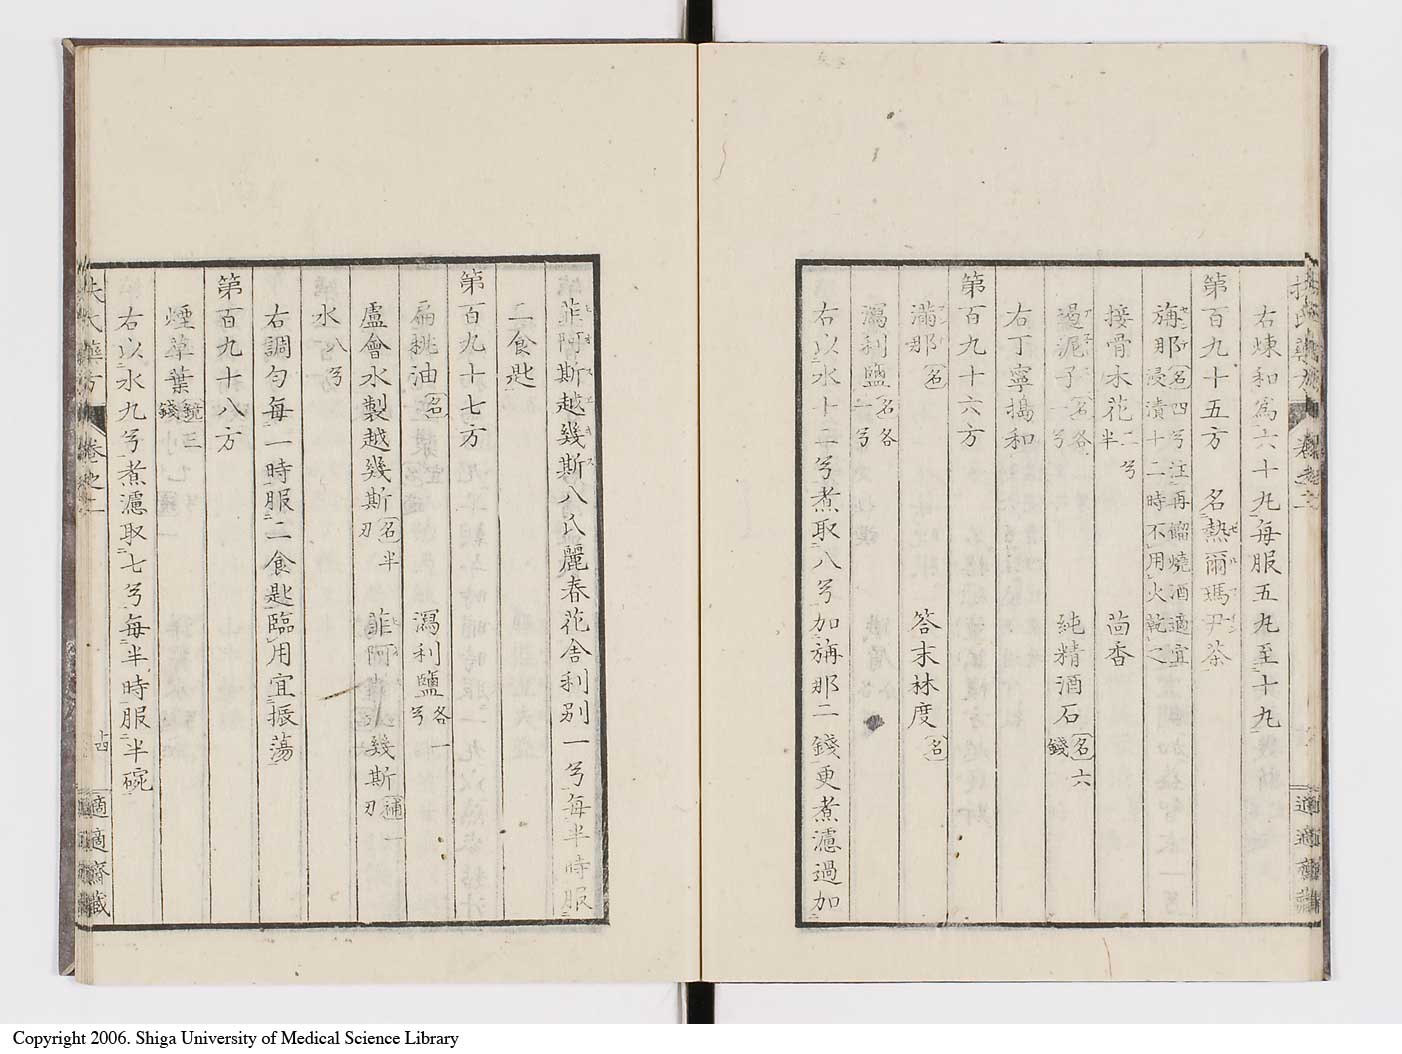 右煉和爲六十丸毎服五丸至十丸
第百九十五方　名熱爾瑪尹茶
旃那 名四兮注再餾燒酒適宜浸漬十二時不用火乾之
接骨木花 二兮半　茴香
遏泥子 名各一兮　純精酒石 名六錢
右丁寧搗和
第百九十六方
滿那 名　答末袜度 名
瀉利鹽 名各二兮
右以水十二兮煮取八兮加旃那二錢更煮濾過加
韭阿斯越幾斯八八麗春花舎利別一兮毎半時服
二食匙
第百九十七方
扁桃油 名　瀉利鹽 各一兮
盧會水製越幾斯 名半刃　韭阿 幾斯 通一刃
水 八兮
右調勻毎一時服二食匙臨用宜振蕩
第百九十八方
煙草葉 鏡三錢
右以水九兮煮濾取七兮毎半時服半碗
扶氏藥方 卷之二 適適齋藏
Copyright 2006. Shiga University of Medical Science Library